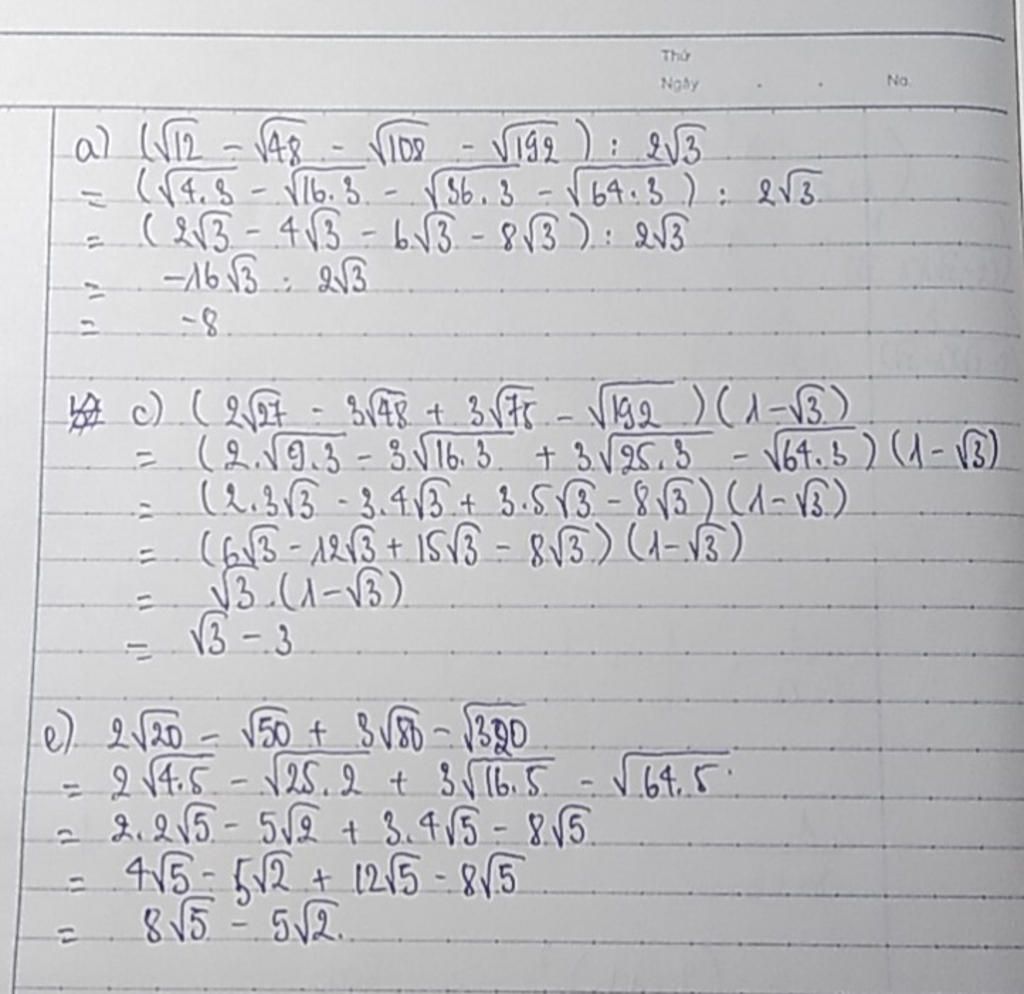 Thứ
Ngày . . No.
a) (√12 - √48 - √108 - √192) : 2√3
= (√4.3 - √16.3 - √36.3 - √64.3) : 2√3
= (2√3 - 4√3 - 6√3 - 8√3) : 2√3
= -16√3 : 2√3
= -8
c) (2√27 - 3√48 + 3√75 - √192)(1-√3)
= (2.√9.3 - 3√16.3 + 3√25.3 - √64.3)(1-√3)
= (2.3√3 - 3.4√3 + 3.5√3 - 8√3)(1-√3)
= (6√3 - 12√3 + 15√3 - 8√3)(1-√3)
= √3.(1-√3)
= √3 - 3
e) 2√20 - √50 + 3√80 - √320
= 2√4.5 - √25.2 + 3√16.5 - √64.5
= 2.2√5 - 5√2 + 3.4√5 - 8√5
= 4√5 - 5√2 + 12√5 - 8√5
= 8√5 - 5√2.